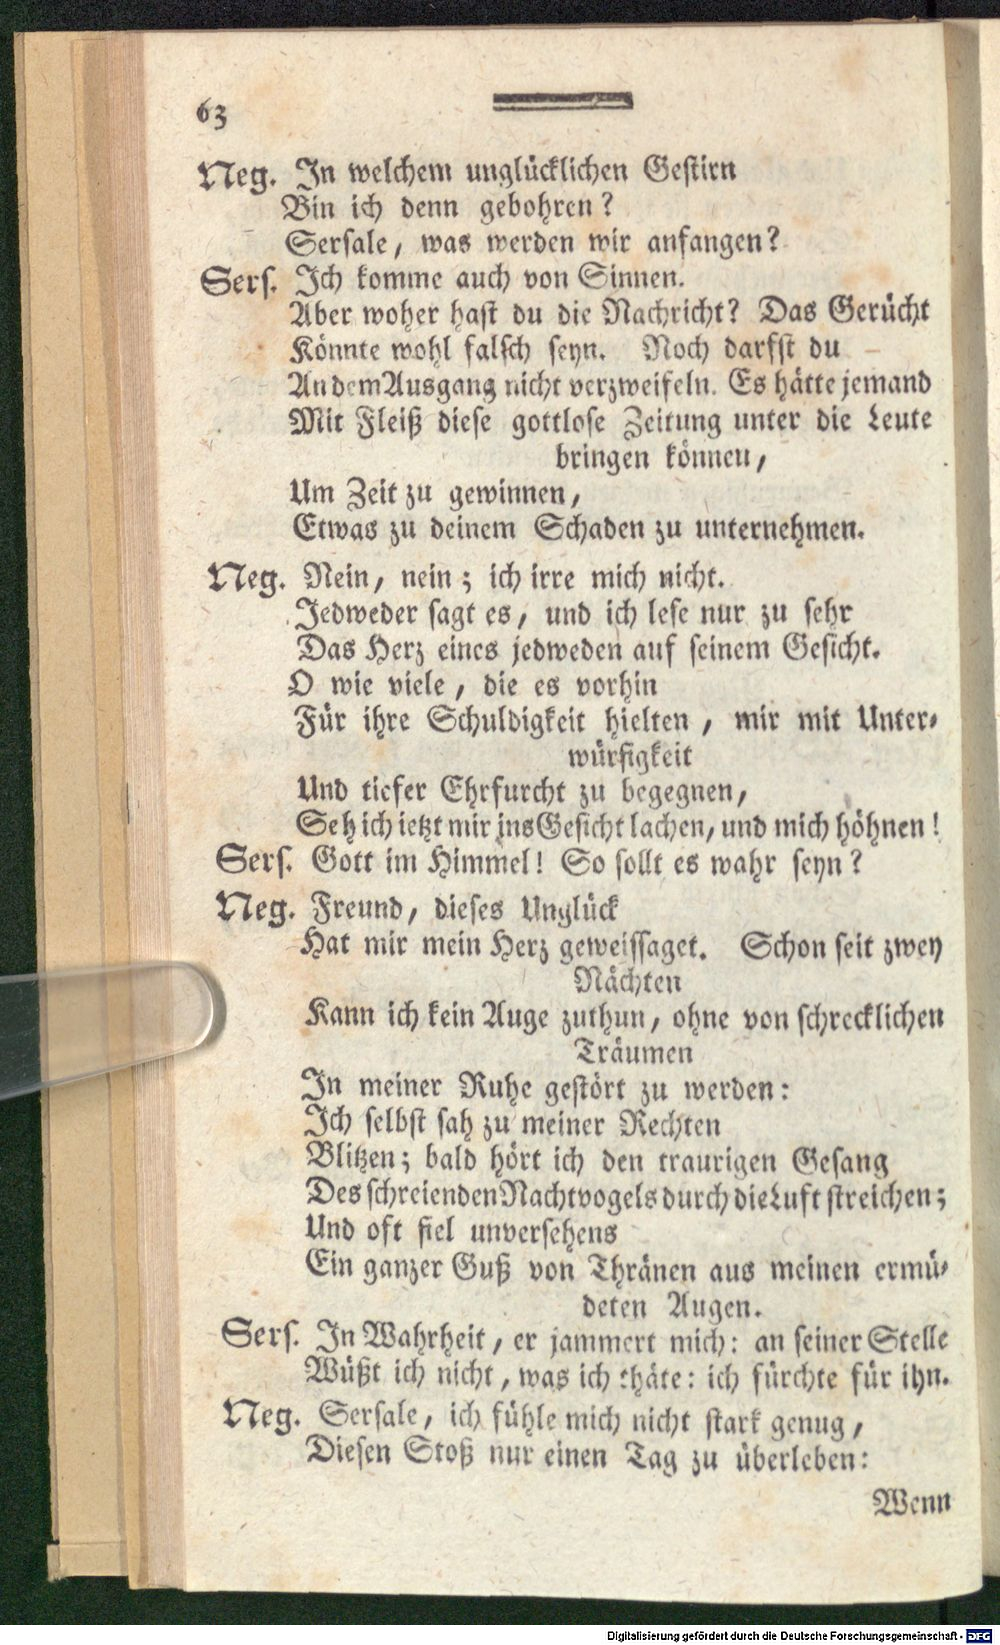 63
Neg. In welchem unglücklichen Gestirn
Bin ich denn gebohren?
Sersale, was werden wir anfangen?
Sers. Ich komme auch von Sinnen.
Aber woher hast du die Nachricht? Das Gerücht
Könnte wohl falsch seyn. Noch darfst du
An dem Ausgang nicht verzweifeln. Es hätte jemand
Mit Fleiß diese gottlose Zeitung unter die Leute
bringen könneu,
Um Zeit zu gewinnen,
Etwas zu deinem Schaden zu unternehmen.
Neg. Nein, nein; ich irre mich nicht.
Jedweder sagt es, und ich lese nur zu sehr
Das Herz eines jedweden auf seinem Gesicht.
O wie viele, die es vorhin
Für ihre Schuldigkeit hielten, mir mit Unter-
würfigkeit
Und tiefer Ehrfurcht zu begegnen,
Seh ich ietzt mir ins Gesicht lachen, und mich höhnen!
Sers. Gott im Himmel! So sollt es wahr seyn?
Neg. Freund, dieses Unglück
Hat mir mein Herz geweissaget. Schon seit zwey
Nächten
Kann ich kein Auge zuthun, ohne von schrecklichen
Träumen
In meiner Ruhe gestört zu werden:
Ich selbst sah zu meiner Rechten
Blitzen; bald hört ich den traurigen Gesang
Des schreienden Nachtvogels durch die Luft streichen;
Und oft fiel unversehens
Ein ganzer Guß von Thränen aus meinen ermü-
deten Augen.
Sers. In Wahrheit, er jammert mich: an seiner Stelle
Wüßt ich nicht, was ich thäte: ich fürchte für ihn.
Neg. Sersale, ich fühle mich nicht stark genug,
Diesen Stoß nur einen Tag zu überleben:
Wenn
Digitalisierung gefördert durch die Deutsche Forschungsgemeinschaft - DFG